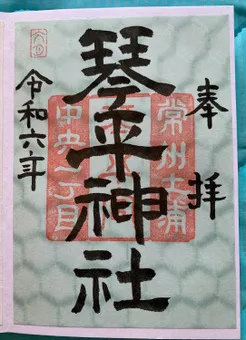 奉拝
常州土浦
琴平神社
中央一丁目
令和六年